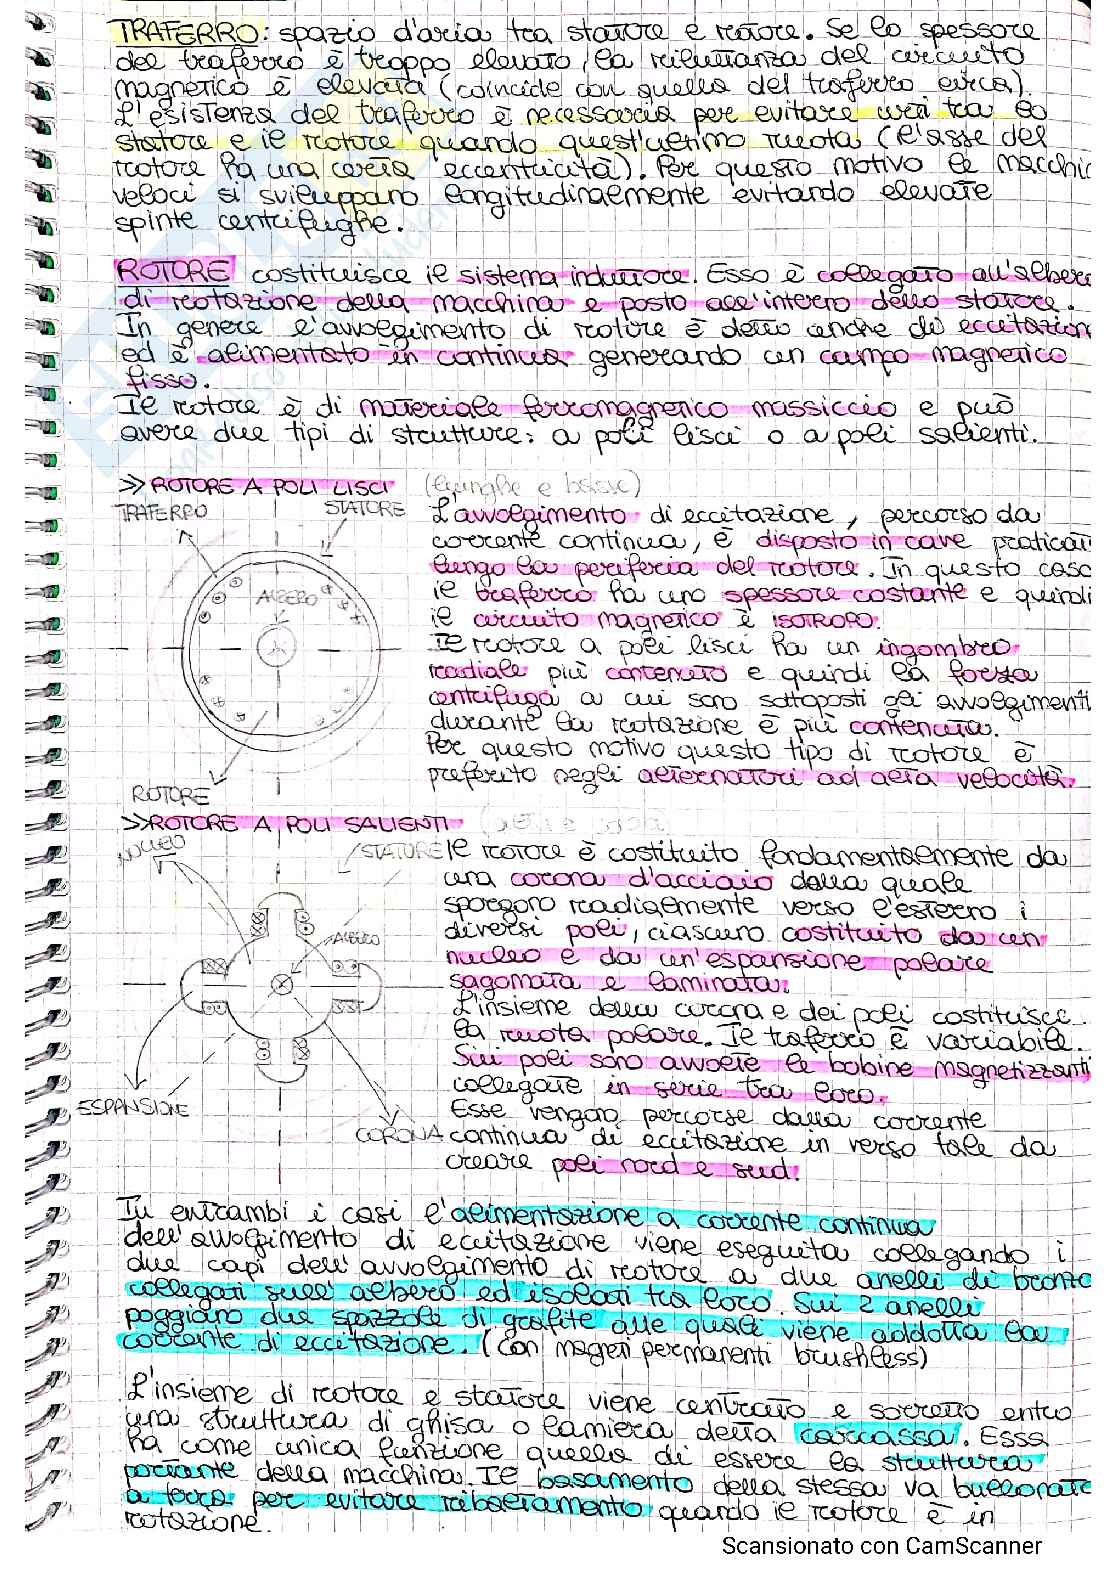 TRAFERRO: spazio d'aria tra statore e rotore. Se lo spessore
del traferro è troppo elevato, la riluttanza del circuito
magnetico è elevata (coincide con quella del traferro circa).
L'esistenza del traferro è necessaria per evitare urti tra lo
statore e il rotore quando quest'ultimo ruota (l'asse del
rotore ha una certa eccentricità). Per questo motivo le macchin
veloci si sviluppano longitudinalmente evitando elevate
spinte centrifughe.
ROTORE costituisce il sistema induttore. Esso è collegato all'alber
di rotazione della macchina e posto all'interno dello statore.
In genere l'avvolgimento di rotore è detto anche di eccitazion
ed è alimentato in continua generando un campo magnetico
fisso.
Il rotore è di materiale ferromagnetico massiccio e può
avere due tipi di strutture: a poli lisci o a poli salienti.
>> ROTORE A POLI LISCI (lunghe e basse)
TRAFERRO
STATORE
ALBERO
ROTORE
L'avvolgimento di eccitazione, percorso da
corrente continua, è disposto in cave praticat
lungo la periferia del rotore. In questo caso
il traferro ha uno spessore costante e quindi
il circuito magnetico è ISOTROPO.
Il rotore a poli lisci ha un ingombro
radiale più contenuto e quindi la forza
centrifuga a cui sono sottoposti gli avvolgimenti
durante la rotazione è più contenuta.
Per questo motivo questo tipo di rotore è
preferito negli alternatori ad alta velocità.
>> ROTORE A POLI SALIENTI
NUCLEO
STATORE
ALBERO
ESPANSIONE
CORONA
Il rotore è costituito fondamentalmente da
una corona d'acciaio dalla quale
sporgono radialmente verso l'esterno i
diversi poli, ciascuno costituito da un
nucleo e da un'espansione polare
sagomata e laminata.
L'insieme della corona e dei poli costituisce
la ruota polare. Il traferro è variabile.
Sui poli sono avvolte le bobine magnetizzanti
collegate in serie tra loro.
Esse vengono percorse dalla corrente
continua di eccitazione in verso tale da
creare poli nord e sud.
In entrambi i casi l'alimentazione a corrente continua
dell'avvolgimento di eccitazione viene eseguita collegando i
due capi dell'avvolgimento di rotore a due anelli di bronzo
collegati sull'albero ed isolati tra loro. Sui 2 anelli
poggiano due spazzole di grafite alle quali viene addotta la
corrente di eccitazione. (Con magneti permanenti brushless)
L'insieme di rotore e statore viene centrato e sorretto entro
una struttura di ghisa o lamiera detta carcassa. Essa
ha come unica funzione quella di essere la struttura
portante della macchina. Il basamento della stessa va bullonato
a terra per evitare ribaltamento quando il rotore è in
rotazione.
Scansionato con CamScanner